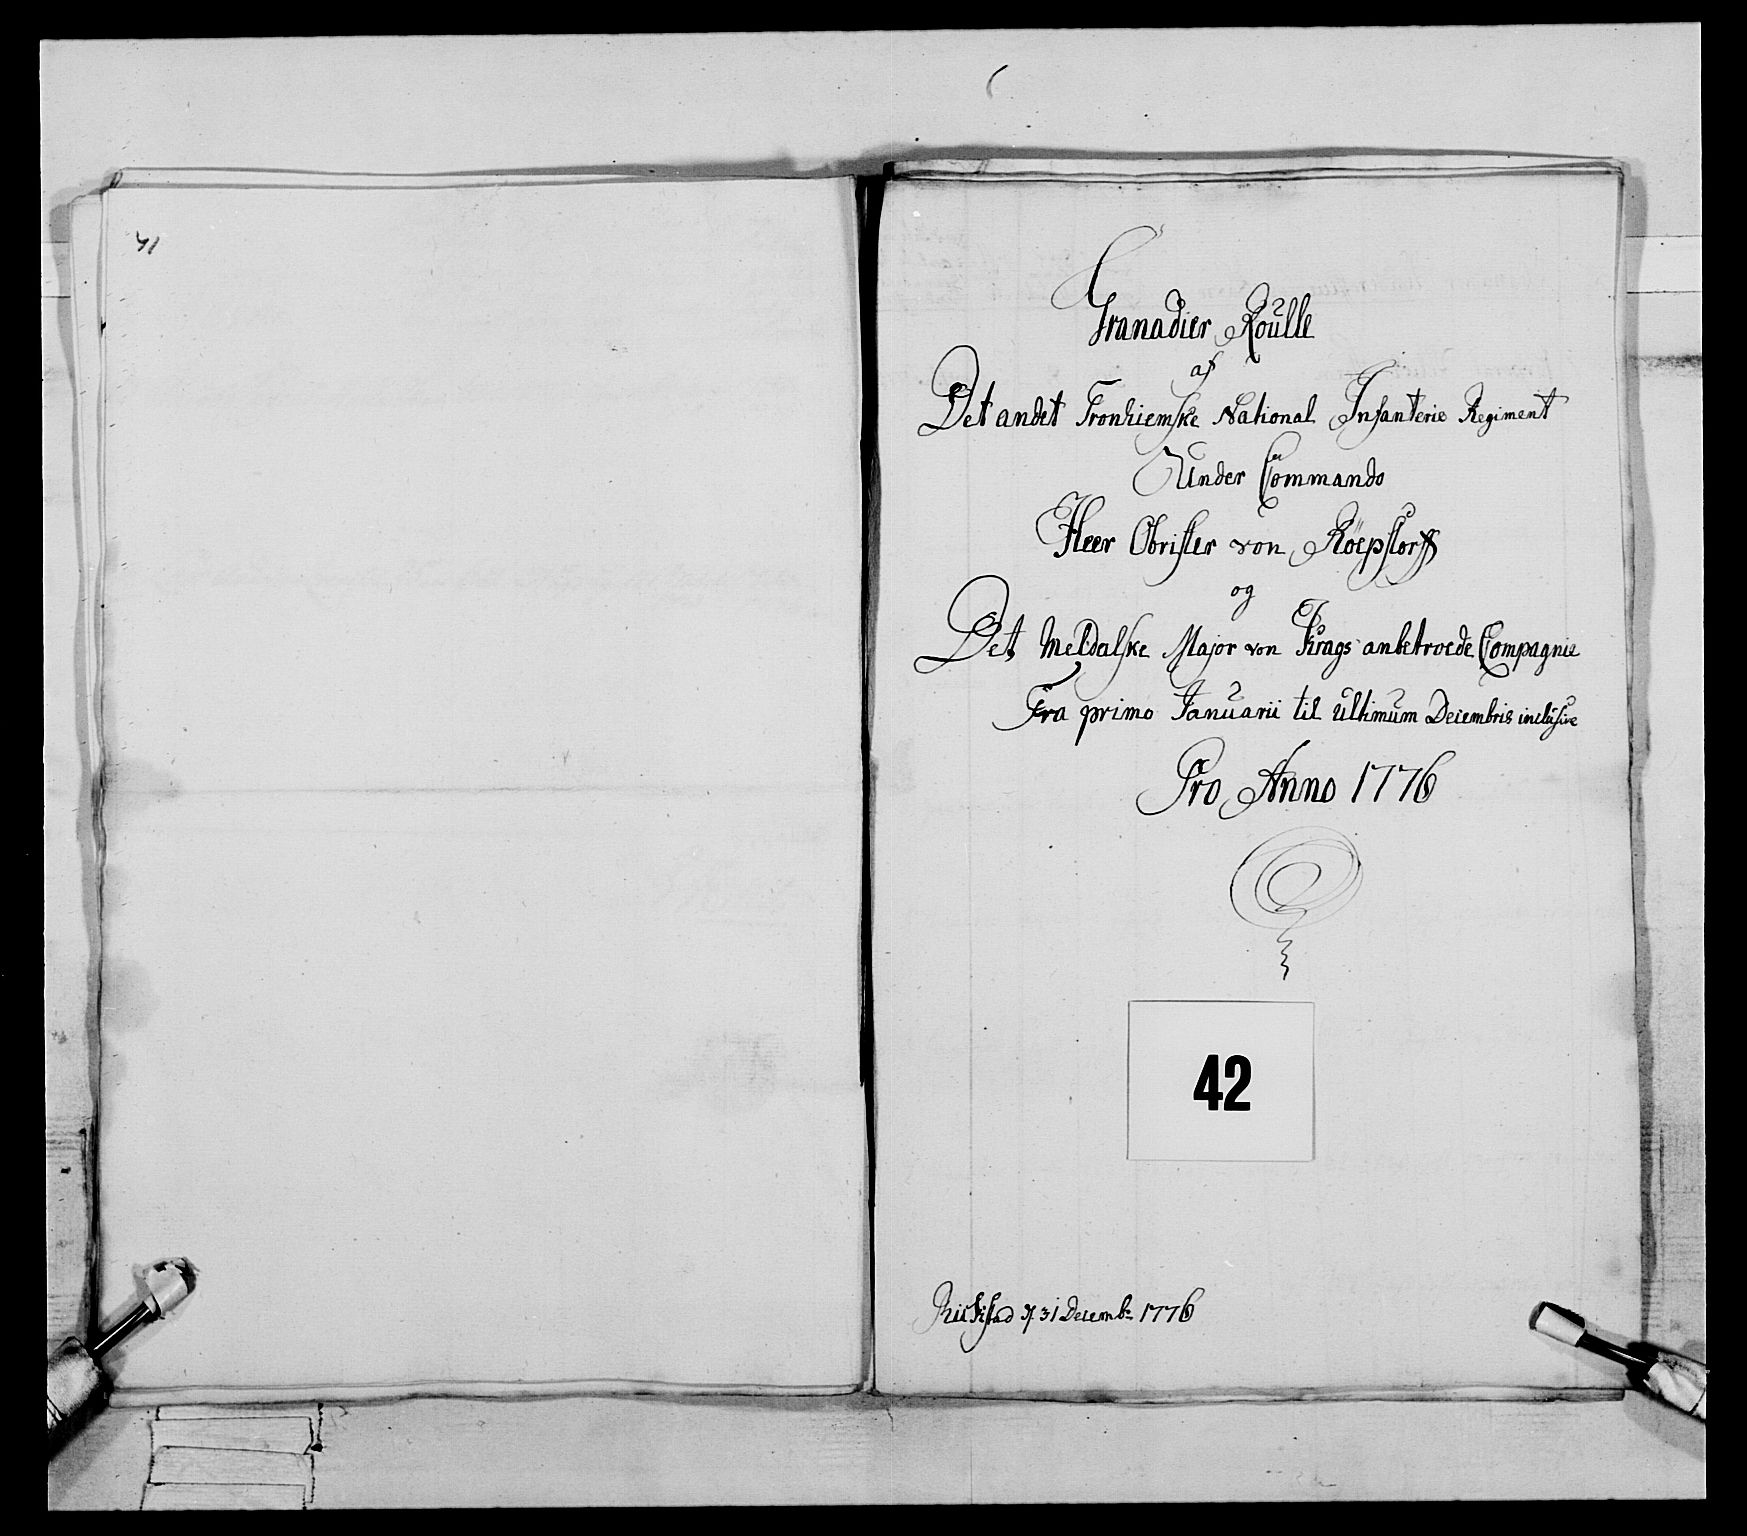 41
Granadier Roulle
af
Det andet Tronhiemske National Infanterie Regiment
Under Commando
Heer Obrister von Röepstorff
og
Det Meldalske Major von Krags anbetroede Compagnie
Fra primo Januarii til ultimum Decembris inclusive
Pro Anno 1776
42
31 Decembr 1776